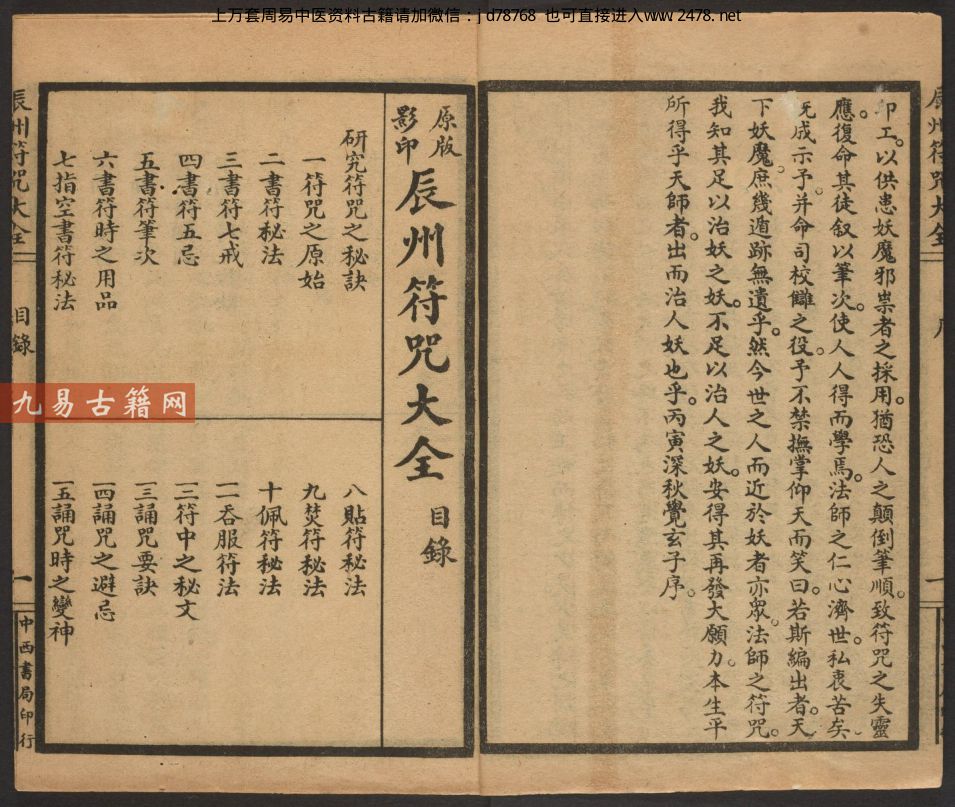 上万套周易中医资料古籍请加微信：jd78768 也可直接进入www.2478.net
印工。以供患妖魔邪祟者之採用。猶恐人之顛倒筆順。致符咒之失靈
應。復命其徒叙以筆次。使人人得而學焉。法師之仁心濟世。私衷苦矣。
既成示予。并命司校讎之役。予不禁撫掌仰天而笑曰。若斯編出者。天
下妖魔。庶幾遁跡無遺乎。然今世之人而近於妖者亦眾。法師之符咒。
我知其足以治妖之妖。不足以治人之妖。安得其再發大願力。本生平
所得乎天師者。出而治人妖也乎。丙寅深秋覺玄子序。
辰州符咒大全
原版影印
辰州符咒大全 目錄
研究符咒之秘訣
一符咒之原始
二書符秘法
三書符七戒
四書符五忌
五書符筆次
六書符時之用品
七指空書符秘法
八貼符秘法
九焚符秘法
十佩符秘法
一一吞服符法
一二符中之秘文
一三誦咒要訣
一四誦咒之避忌
一五誦咒時之變神
辰州符咒大全
目錄
一
中西書局印行
九易古籍网